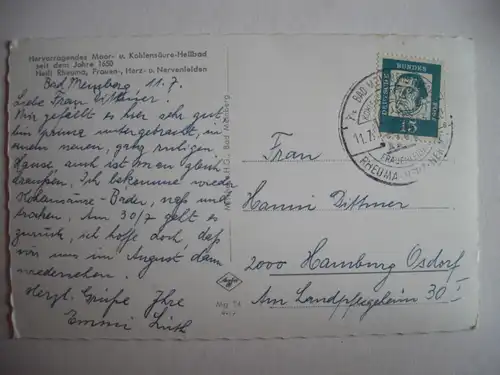 Hervorragendes Moor- u. Kohlensäure-Heilbad
seit dem Jahre 1650
Heilt Rheuma, Frauen-, Herz- u. Nervenleiden
Bad Meinberg, 11.7.
Liebe Frau Dittmer.
Mir gefällt es hier sehr gut,
bin prima untergebracht, in
einem neuen, ganz ruhigen
Hause auch ist man gleich
draußen. Ich bekomme wieder
Kohlensäure-Bäder, naß und
trocken. Am 30/7 geht es
zurück, ich hoffe doch, daß
wir uns im August dann
wiedersehen.
Herzl. Grüße Ihre
Emmi
Bad Meinberg
Agfa
DEUTSCHE BUNDES POST
15
BAD M
11.7
FRAUEN
RHEUMA
Frau
Hanni Dittmer
2000 Hamburg Osdorf
Am Landpflegeheim 30